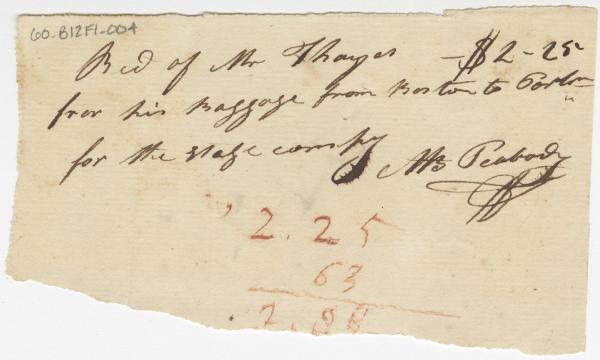 60.B12F1-004
Rcd of Mr Thayer — $2-25
for his Baggage from Boston to Portn
for the stage compy
AB Peabody
2.25
63
2.88